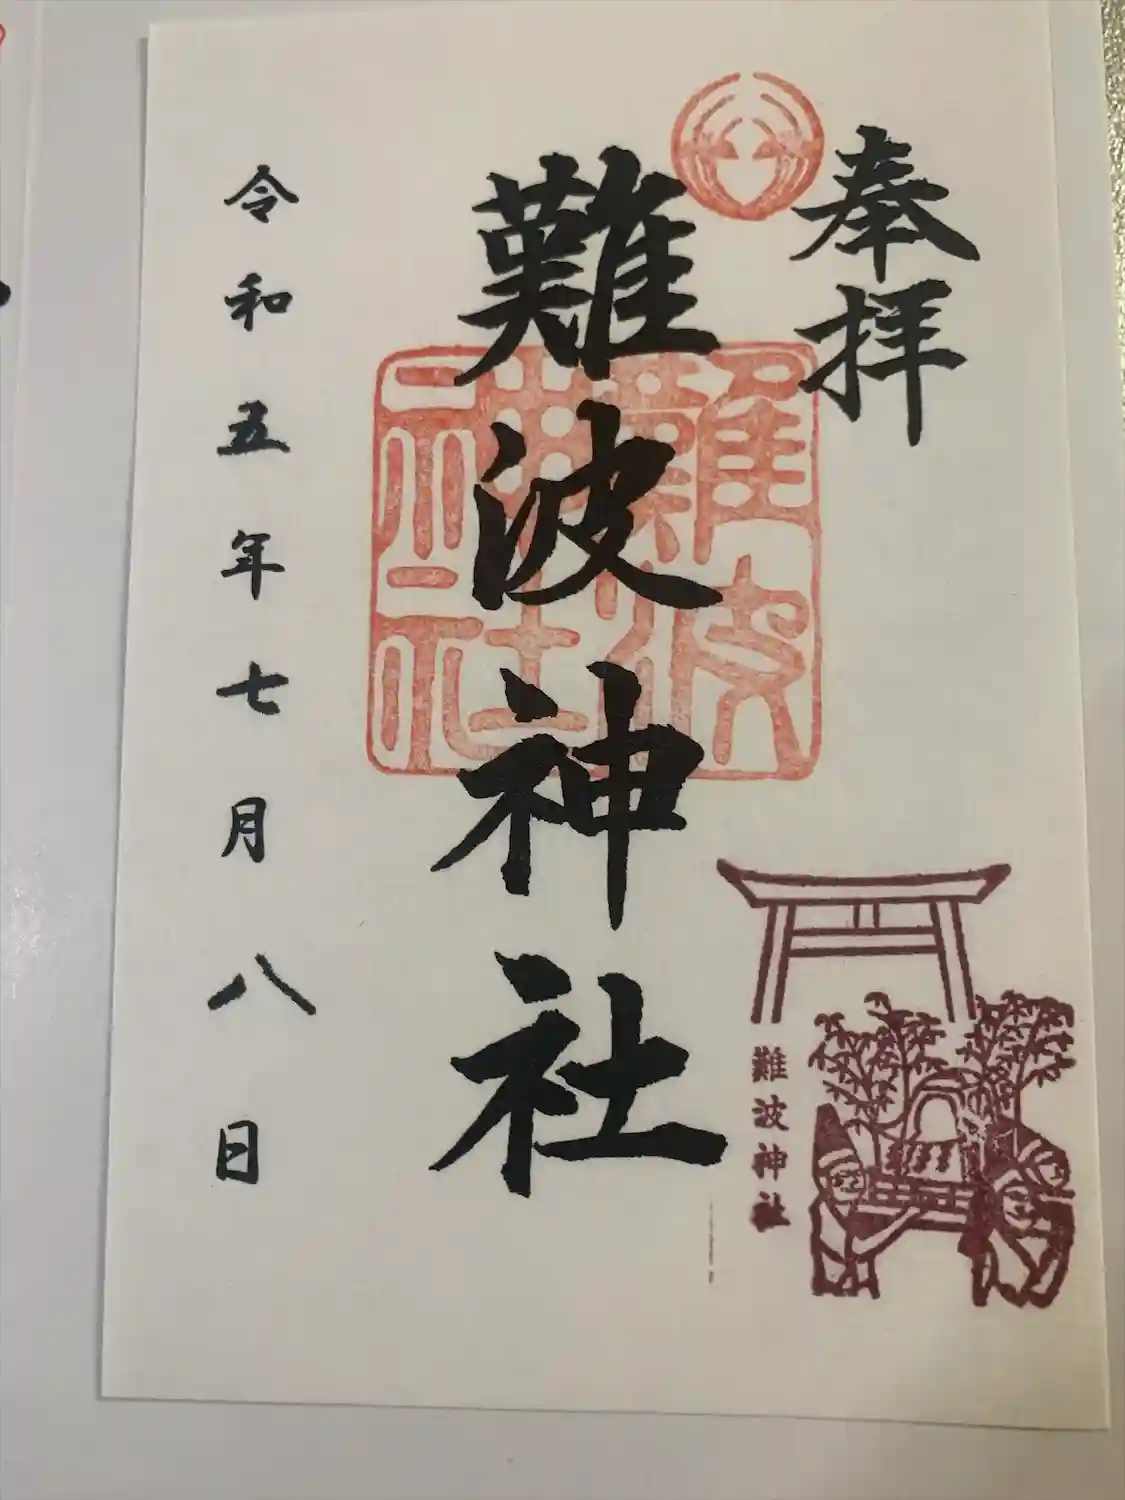 奉拝
難波神社
難波神社
令和五年七月八日
難波神社